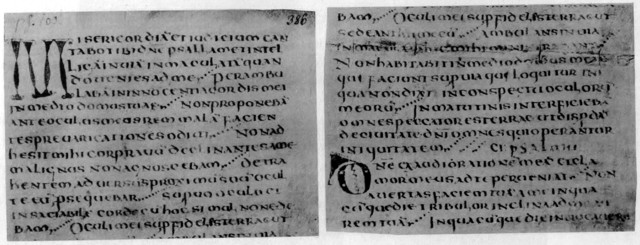 ps. 100.
386
MISERICORDIAETIUDICIUMCAN
TABOTIBIDNEPSALLAMETINTEL
LIGAINUIAINMACULATAQUAN
DOUENIESADME PERAMBU
LABAININNOCENTIACORDISMEI
INMEDIODOMUSTUAE NONPROPONEBA
ANTEOCULOSMEOSREMMALA FACIEN
TESPREUARICATIONESODIUI NONAD
HESITMIHICORPRAUU DECLINANTESAME
MALIGNOSNONAGNOSCEBAM DETRA
HENTEMADUERSUSPROXIMUSUUOCUL
TEEUPSEQUEBAR SUPUOOCULOCI
INSATIABILICORDECUHOCSIMULNONEDE
BAM OCULIMEISUPFIDELESTERRAEUT
AMBULANSINUIA
BAM OCULIMEISUPFIDELESTERRAEUT
SEDEANTHIIMECU AMBULANSINUIA
INMACULATA
NONHABITABITINMEDIODOMUSMEAE
QUIFACIUNTSUPUIAQUILOQUITURINI
QUANONDIXITINCONSPECTUOCULORU
MEORU INMATUTINISINTERFICIEBA
OMNESPECCATORESTERRAEUTDISPDA
DECIUITATEDNIOMNESQUIOPERANTUR
INIQUITATEM
DNEEXAUDIORATIONEMEAETCLA
MORMEUSADTEPERUENIAT NON
AUERTASFACIEMTUAAMEINQUA
CUQUEDIETRIBULORINCLINAADMEAU
REMTUA INQUACUQUEDIEINUOCAUERO